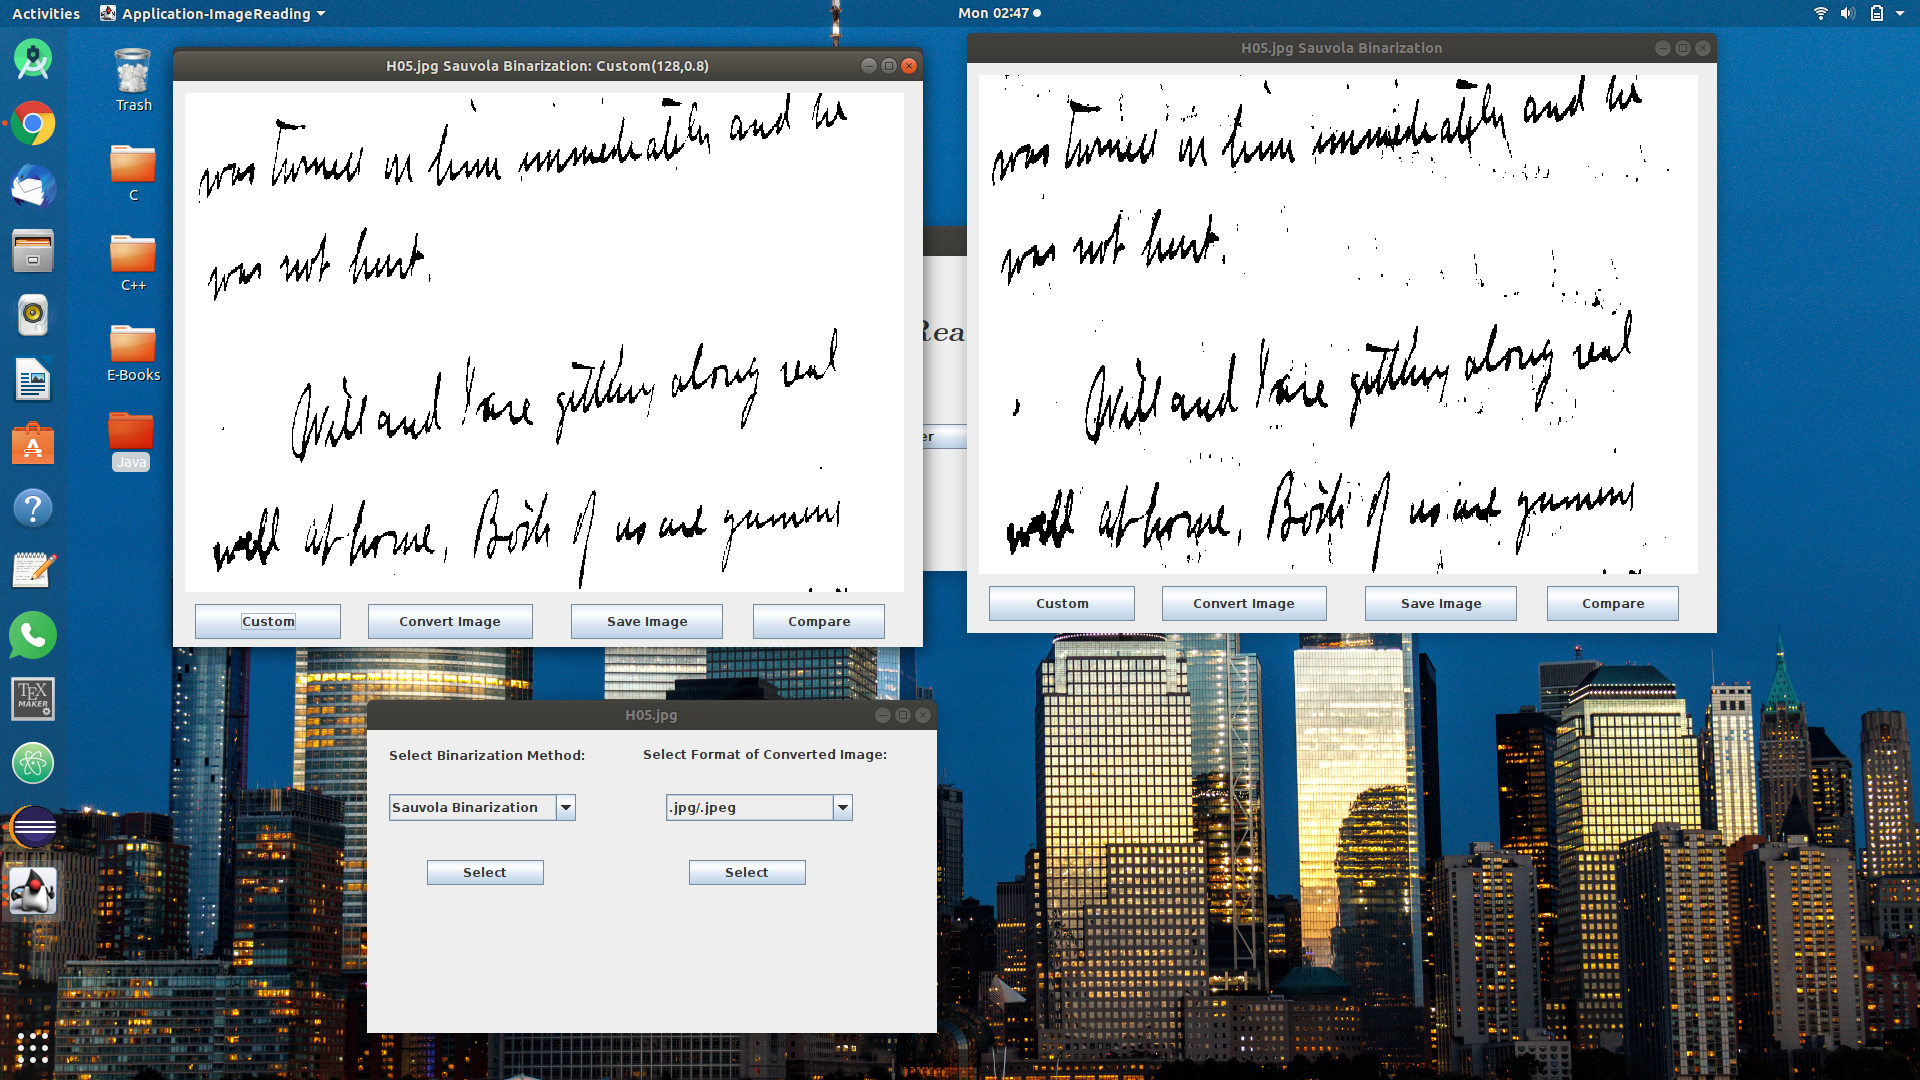 Activities
Application-ImageReading
Mon 02:47
Trash
C
C++
E-Books
Java
TEX
MAKER
H05.jpg Sauvola Binarization: Custom(128,0.8)
was turned in him immediately and he
was not hurt.
Will and I are getting along real
well at home, Both of us are
Custom
Convert Image
Save Image
Compare
H05.jpg Sauvola Binarization
was turned in him immediately and he
was not hurt.
Will and I are getting along real
well at home, Both of us are
Custom
Convert Image
Save Image
Compare
Rea
er
H05.jpg
Select Binarization Method:
Select Format of Converted Image:
Sauvola Binarization
.jpg/.jpeg
Select
Select